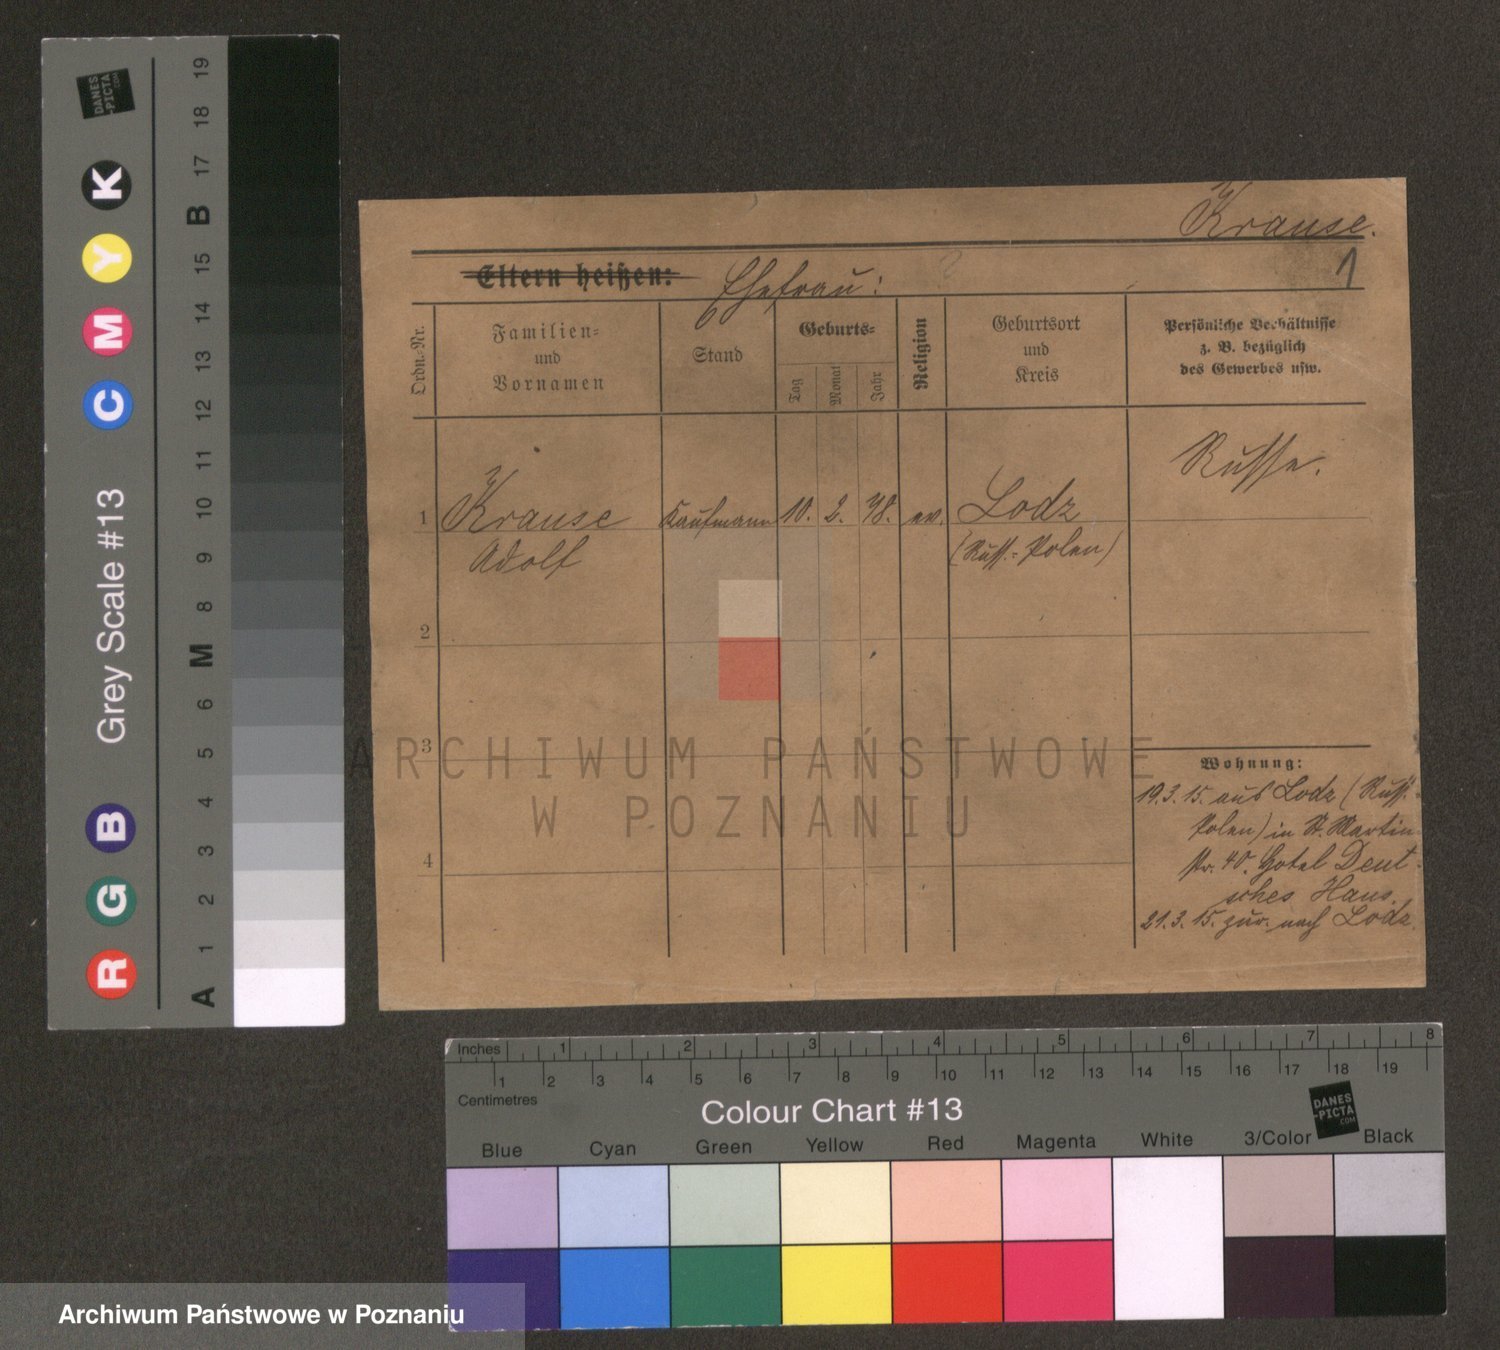 Krause.
1
Eltern heißen: Ehefrau:
Ordn.-Nr.
Familien-
und
Vornamen
Stand
Geburts-
Tag
Monat
Jahr
Religion
Geburtsort
und
Kreis
Persönliche Verhältnisse
z. B. bezüglich
des Gewerbes usw.
Russe.
1 Krause Kaufmann 10. 2. 78. ev. Lodz
Adolf (Russ.-Polen)
2
3
4
Wohnung:
19.3.15. aus Lodz (Russ.-
Polen) in St. Martin
str. 40. Hotel Deut-
sches Haus.
21.3.15. zur. nach Lodz.
ARCHIWUM PAŃSTWOWE
W POZNANIU
DANES
-PICTA
.COM
K
Y
M
C
B
G
R
Grey Scale #13
19
18
17
B
15
14
13
12
11
10
9
8
M
6
5
4
3
2
1
A
Inches 1 2 3 4 5 6 7 8
1 2 3 4 5 6 7 8 9 10 11 12 13 14 15 16 17 18 19
Centimetres
Colour Chart #13
DANES
-PICTA
.COM
Blue Cyan Green Yellow Red Magenta White 3/Color Black
Archiwum Państwowe w Poznaniu